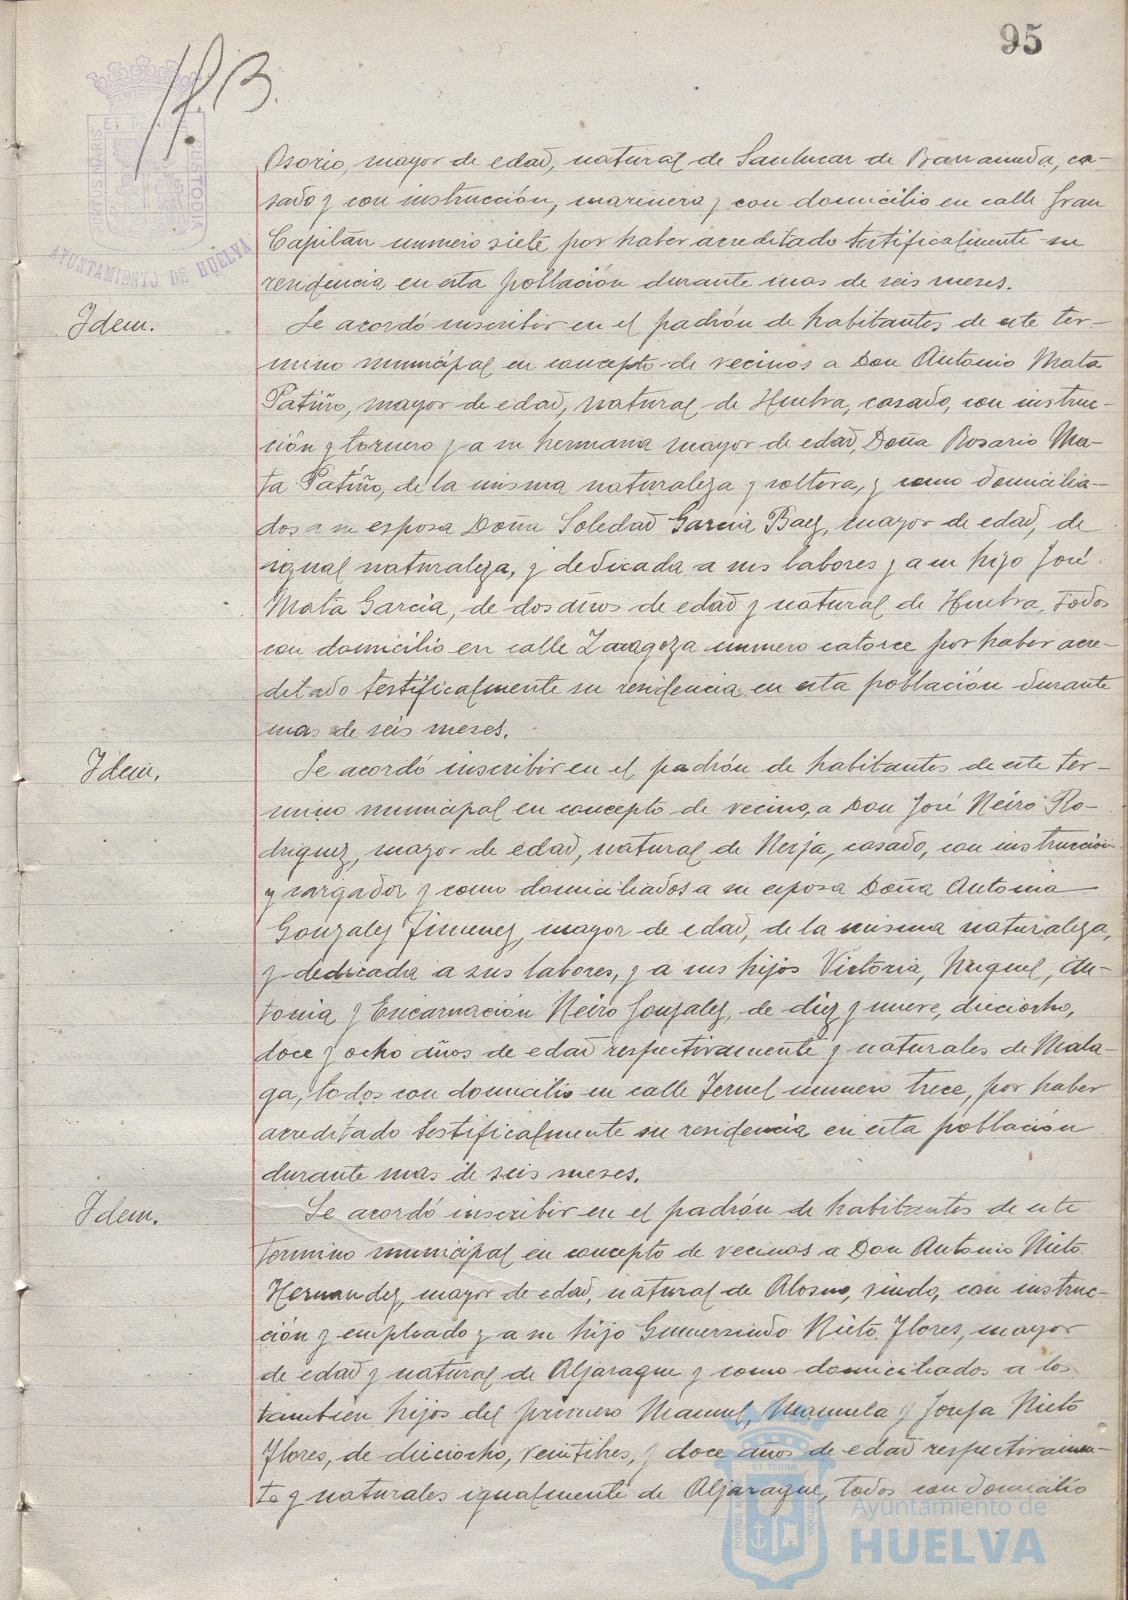 95
P. B.
PORTUS MARIS ET TERRAE CUSTODIA
AYUNTAMIENTO DE HUELVA
Osorio, mayor de edad, natural de Sanlucar de Barrameda, ca-
sado y con instrucción, marinero y con domicilio en calle Gran
Capitán numero siete por haber acreditado testificalmente su
residencia en esta población durante mas de seis meses.
Idem.
Se acordó inscribir en el padrón de habitantes de este ter-
mino municipal en concepto de vecinos a Don Antonio Mata
Patiño, mayor de edad, natural de Huelva, casado, con instruc-
ción y tornero y a su hermana mayor de edad, Doña Rosario Ma-
ta Patiño, de la misma naturaleza y soltera, y como domicilia-
dos a su esposa Doña Soledad Garcia Baez, mayor de edad, de
igual naturaleza, y dedicada a sus labores y a su hijo José
Mata Garcia, de dos años de edad y natural de Huelva, todos
con domicilio en calle Zaragoza numero catorce por haber acre-
ditado testificalmente su residencia en esta población durante
mas de seis meses.
Idem.
Se acordó inscribir en el padrón de habitantes de este ter-
mino municipal en concepto de vecino, a Don José Neiro Ro-
driguez, mayor de edad, natural de Nerja, casado, con instrucción
y cargador y como domiciliados a su esposa Doña Antonia
Gonzalez Jimenez, mayor de edad, de la misma naturaleza,
y dedicada a sus labores, y a sus hijos Victoria, Miguel, An-
tonia y Encarnación Neiro Gonzalez, de diez y nueve, dieciocho,
doce y ocho años de edad respectivamente y naturales de Mala-
ga, todos con domicilio en calle Teruel numero trece, por haber
acreditado testificalmente su residencia en esta población
durante mas de seis meses.
Idem.
Se acordó inscribir en el padrón de habitantes de este
termino municipal en concepto de vecinos a Don Antonio Nieto
Hernandez, mayor de edad, natural de Alosno, viudo, con instruc-
ción y empleado y a su hijo Gumersindo Nieto Flores, mayor
de edad y natural de Aljaraque y como domiciliados a los
tambien hijos del primero Manuel, Manuela y Josefa Nieto
Flores, de dieciocho, veintitres, y doce años de edad respectivamen-
te y naturales igualmente de Aljaraque, todos con domicilio
Ayuntamiento de
HUELVA